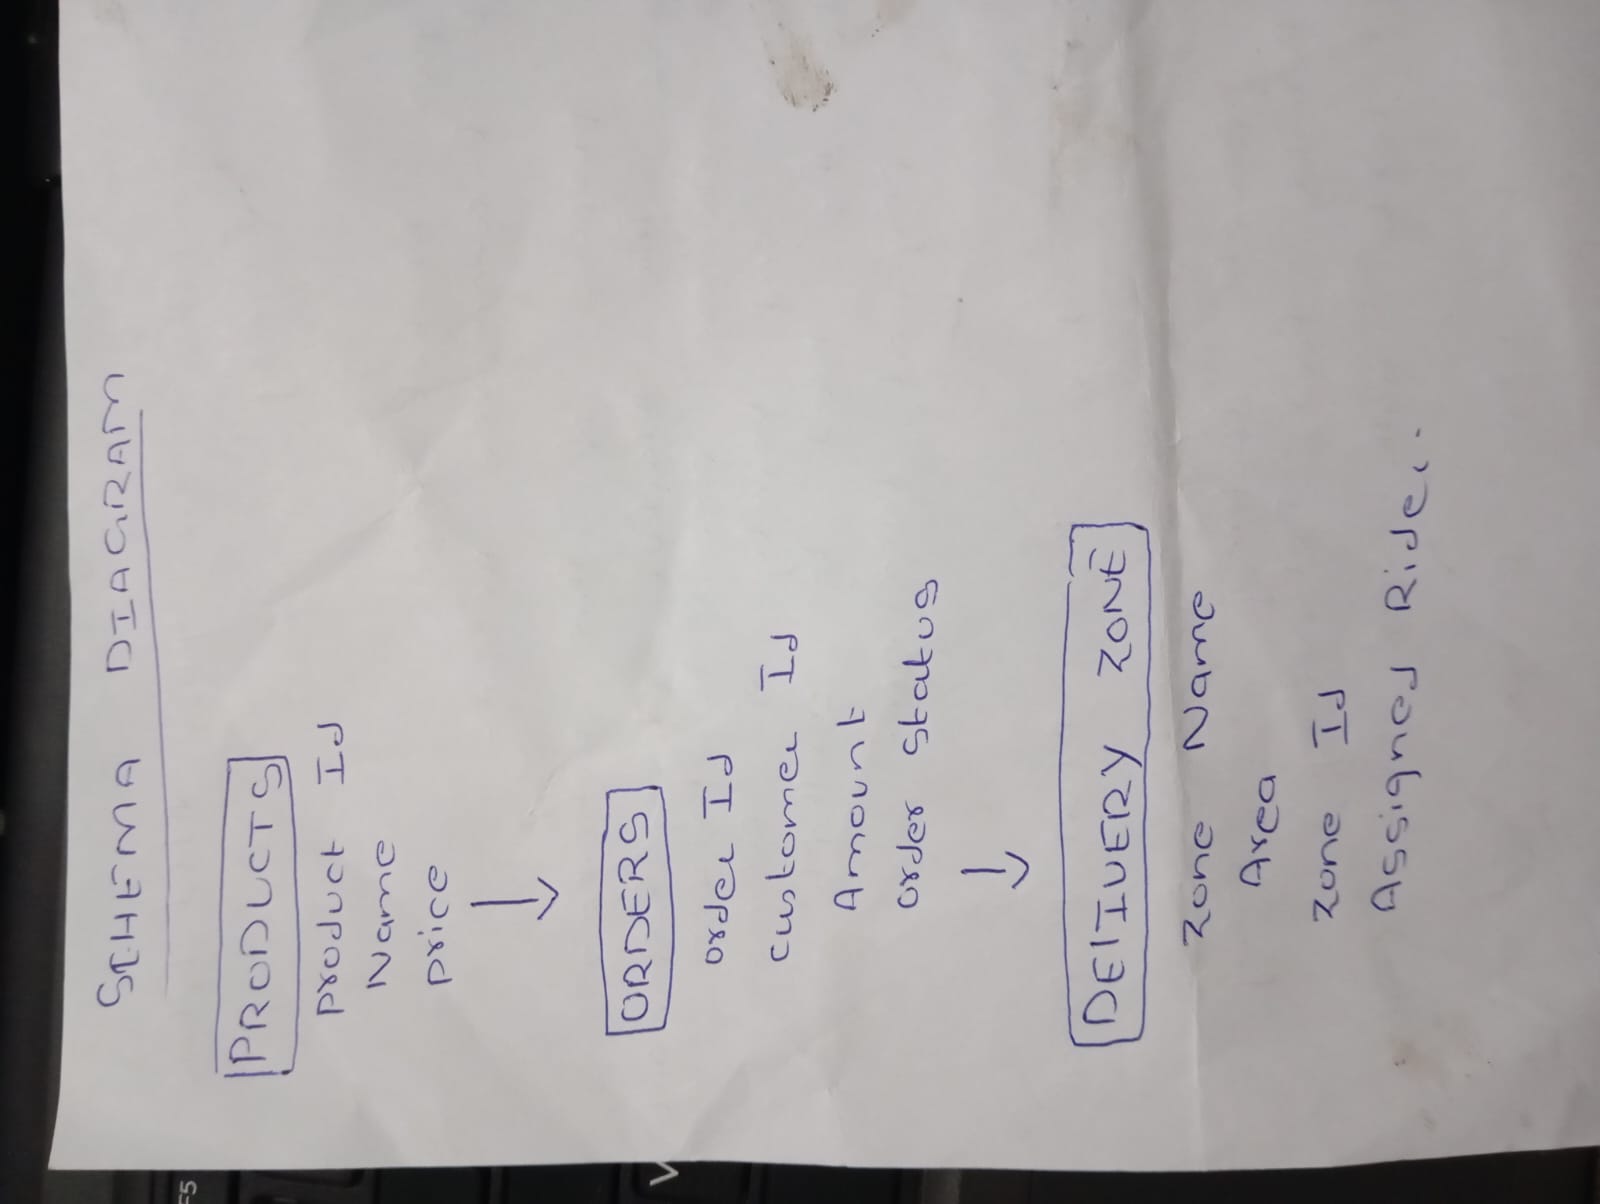 SCHEMA DIAGRAM
PRODUCTS
product Id
Name
price
ORDERS
order Id
customer Id
Amount
order status
DELIVERY ZONE
zone Name
Area
zone Id
Assigned Rider.
F5
V